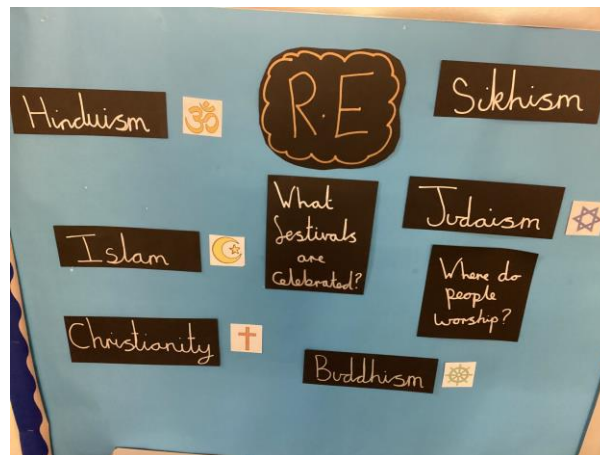 R.E
Hinduism
ॐ
Sikhism
What
festivals
are
celebrated?
Judaism
Islam
Where do
people
worship?
Christianity
Buddhism